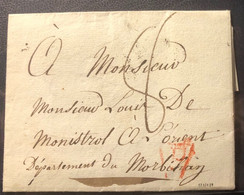 À Monsieur
Monsieur Louis De
Monistrol A L'orient
Département du Morbihan